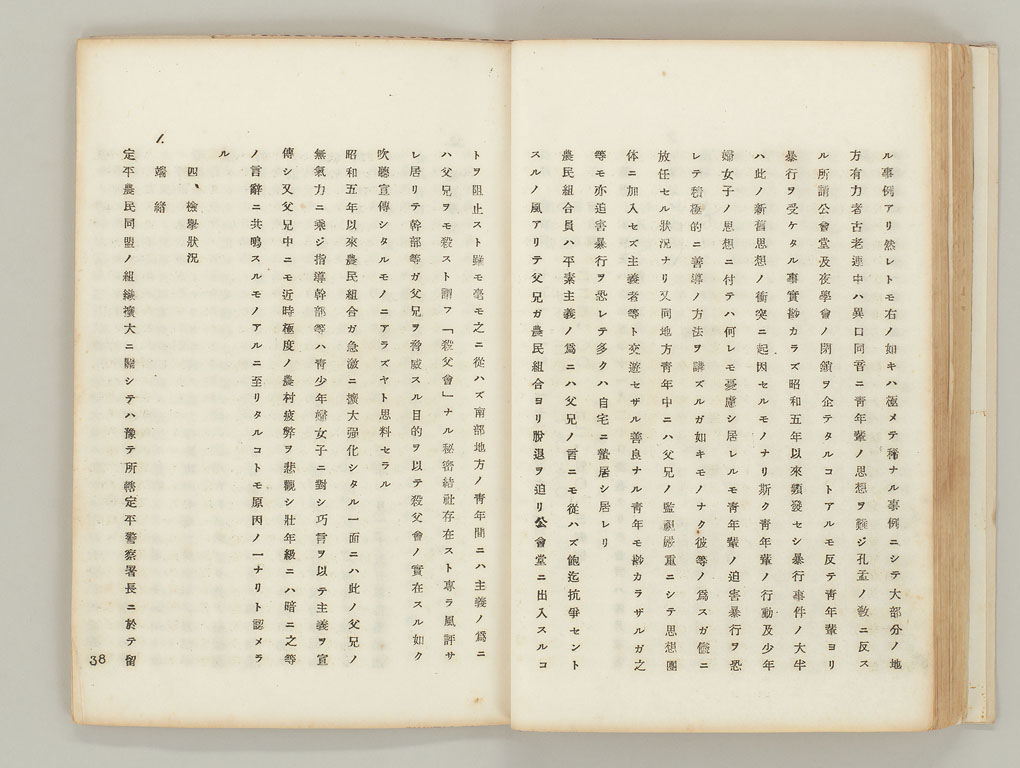 ル事例アリ然レトモ右ノ如キハ極メテ稀ナル事例ニシテ大部分ノ地
方有力者古老連中ハ異口同音ニ青年輩ノ思想ヲ難ジ孔孟ノ敎ニ反ス
ル所謂公會堂及夜學會ノ閉鎖ヲ企テタルコトアルモ反テ青年輩ヨリ
暴行ヲ受ケタル事實尠カラズ昭和五年以來頻發セシ暴行事件ノ大半
ハ此ノ新舊思想ノ衝突ニ起因セルモノナリ斯ク青年輩ノ行動及少年
婦女子ノ思想ニ付テハ何レモ憂慮シ居レルモ青年輩ノ迫害暴行ヲ恐
レテ積極的ニ善導ノ方法ヲ講ズルガ如キモノナク彼等ノ爲スガ儘ニ
放任セル狀況ナリ又同地方青年中ニハ父兄ノ監視嚴重ニシテ思想團
体ニ加入セズ主義者等ト交遊セザル善良ナル青年モ尠カラザルガ之
等モ亦迫害暴行ヲ恐レテ多クハ自宅ニ蟄居シ居レリ
農民組合員ハ平素主義ノ爲ニハ父兄ノ言ニモ從ハズ飽迄抗爭セント
スルノ風アリテ父兄ガ農民組合ヨリ脫退ヲ迫リ公會堂ニ出入スルコ
トヲ阻止スト雖モ毫モ之ニ從ハズ南部地方ノ青年間ニハ主義ノ爲ニ
ハ父兄ヲモ殺スト謂フ「殺父會」ナル秘密結社存在スト專ラ風評サ
レ居リテ幹部等ガ父兄ヲ脅威スル目的ヲ以テ殺父會ノ實在スル如ク
吹聽宣傳シタルモノニアラズヤト思料セラル
昭和五年以來農民組合ガ急激ニ擴大强化シタル一面ニハ此ノ父兄ノ
無氣力ニ乘ジ指導幹部等ハ青少年婦女子ニ對シ巧言ヲ以テ主義ヲ宣
傳シ又父兄中ニモ近時極度ノ農村疲弊ヲ悲觀シ壯年級ニハ暗ニ之等
ノ言辭ニ共鳴スルモノアルニ至リタルコトモ原因ノ一ナリト認メラ
ル
四、檢擧狀況
1. 端緖
定平農民同盟ノ組織擴大ニ關シテハ豫テ所轄定平警察署長ニ於テ留
38